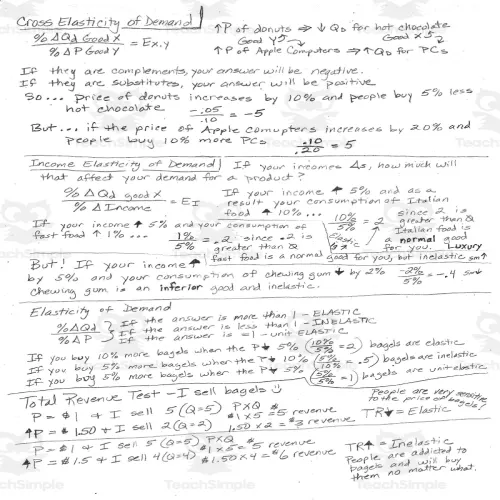 Cross Elasticity of Demand
%ΔQd Good X
%ΔP Good Y = Ex,y
↑P of donuts ⇒ ↓Qd for hot chocolate
Good Y Good X
↑P of Apple Computers ⇒ ↑Qd for PCs
If they are complements, your answer will be negative.
If they are substitutes, your answer will be positive
So... Price of donuts increases by 10% and people buy 5% less
hot chocolate -.05/.10 = -.5
But... if the price of Apple Comupters increases by 20% and
people buy 10% more PCs .10/.20 = .5
Income Elasticity of Demand If your incomes Δs, how much will
that affect your demand for a product?
%ΔQd good X
%Δ Income = EI
If your income ↑ 5% and as a
result your consumption of Italian
food ↑ 10%... 10%/5% = 2 since 2 is
greater than 0
Italian food is
a normal good
for you. Luxury
If your income ↑ 5% and your consumption of
fast food ↑ 1%... 1%/5% = .2 since .2 is
greater than 0
fast food is a normal good for you, but inelastic
But! If your income ↑
by 5% and your consumption of chewing gum ↓ by 2% -2%/5% = -.4
chewing gum is an inferior good and inelastic.
Elasticity of Demand
%ΔQd
%ΔP
If the answer is more than 1 - ELASTIC
If the answer is less than 1 - INELASTIC
If the answer is = 1 - unit ELASTIC
If you buy 10% more bagels when the P↓ 5% (10%/5% = 2) bagels are elastic
If you buy 5% more bagels when the P↓ 10% (5%/10% = .5) bagels are inelastic
If you buy 5% more bagels when the P↓ 5% (5%/5% = 1) bagels are unit elastic
Total Revenue Test - I sell bagels ☺
People are very sensitive
to the price of bagels?
P = $1 & I sell 5 (Q=5) PXQ $1 x 5 = $5 revenue
↑P = $1.50 & I sell 2 (Q=2) 1.50 x 2 = $3 revenue
TR↓ = Elastic
P = $1 & I sell 5 (Q=5) PXQ $1 x 5 = $5 revenue
↑P = $1.5 & I sell 4 (Q=4) $1.50 x 4 = $6 revenue
TR↑ = Inelastic
People are addicted to
bagels and will buy
them no matter what.